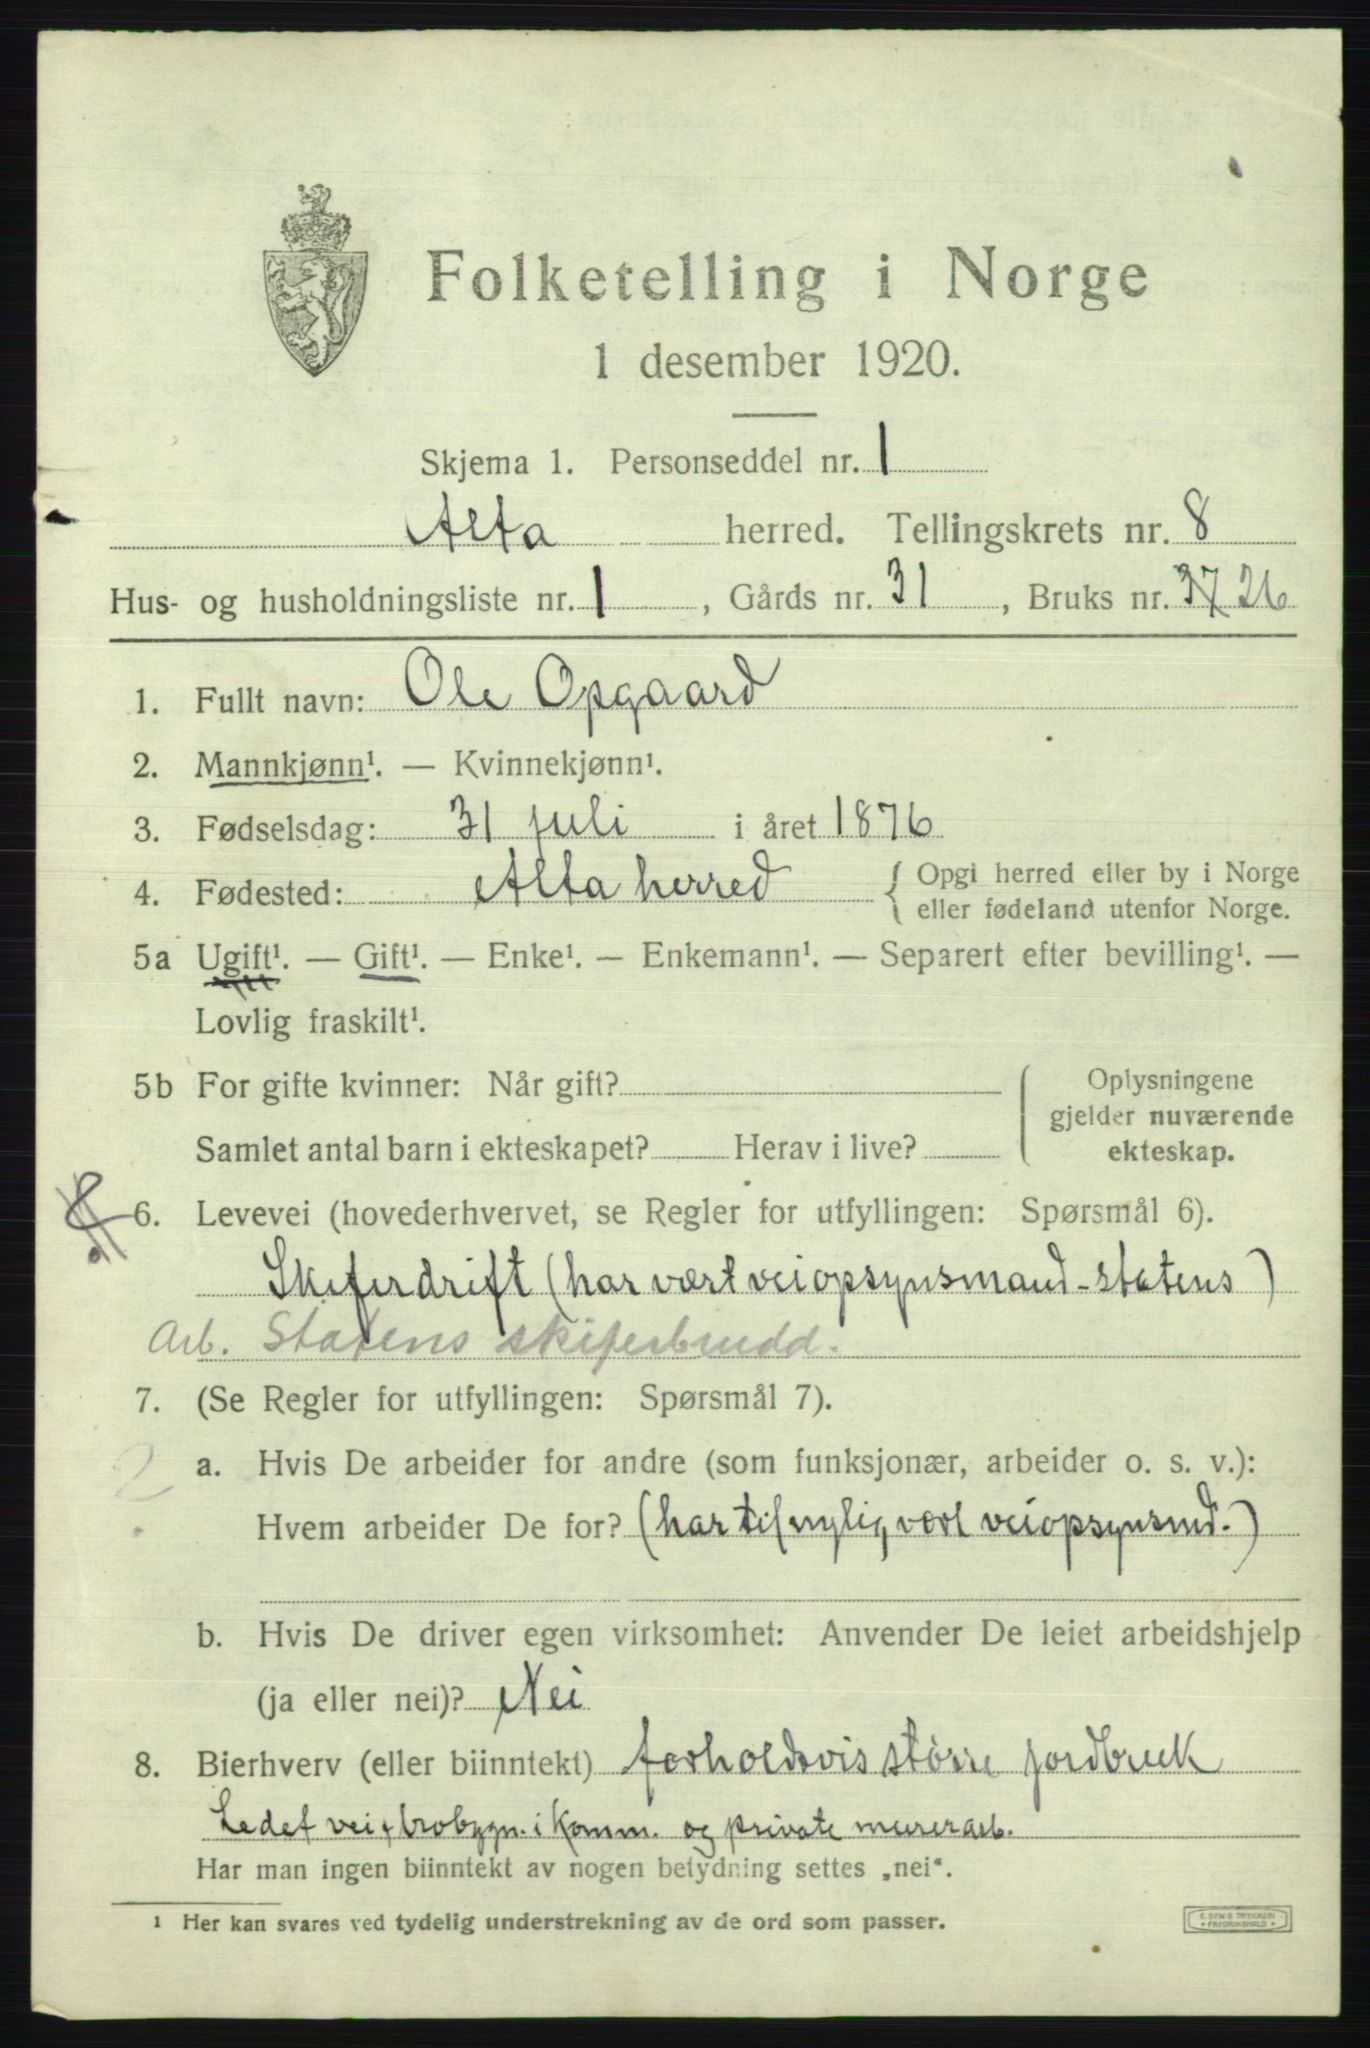 Folketelling i Norge
1 desember 1920.
Skjema 1. Personseddel nr. 1
Alta herred. Tellingskrets nr. 8
Hus- og husholdningsliste nr. 1, Gårds nr. 31, Bruks nr. 37 26
1. Fullt navn: Ole Opgaard
2. Mannkjønn¹. — Kvinnekjønn¹.
3. Fødselsdag: 31 juli i året 1876
4. Fødested: Alta herred { Opgi herred eller by i Norge
eller fødeland utenfor Norge.
5a Ugift¹. — Gift¹. — Enke¹. — Enkemann¹. — Separert efter bevilling¹. —
Lovlig fraskilt¹.
5b For gifte kvinner: Når gift? { Oplysningene
gjelder nuværende
Samlet antal barn i ekteskapet? Herav i live? ekteskap.
6. Levevei (hovederhvervet, se Regler for utfyllingen: Spørsmål 6).
Skiferdrift (har vært veiopsynsmand - statens)
Arb. Statens skiferbrudd.
7. (Se Regler for utfyllingen: Spørsmål 7).
a. Hvis De arbeider for andre (som funksjonær, arbeider o. s. v.):
Hvem arbeider De for? (har til nylig vært veiopsynsmd.)
b. Hvis De driver egen virksomhet: Anvender De leiet arbeidshjelp
(ja eller nei)? Nei
8. Bierhverv (eller biinntekt) forholdsvis større jordbruk
Ledet vei + brobygn. i Komm. og private murerarb.
Har man ingen biinntekt av nogen betydning settes „nei".
¹ Her kan svares ved tydelig understrekning av de ord som passer.
E. SEM'S TRYKKERI
FREDRIKSHALD